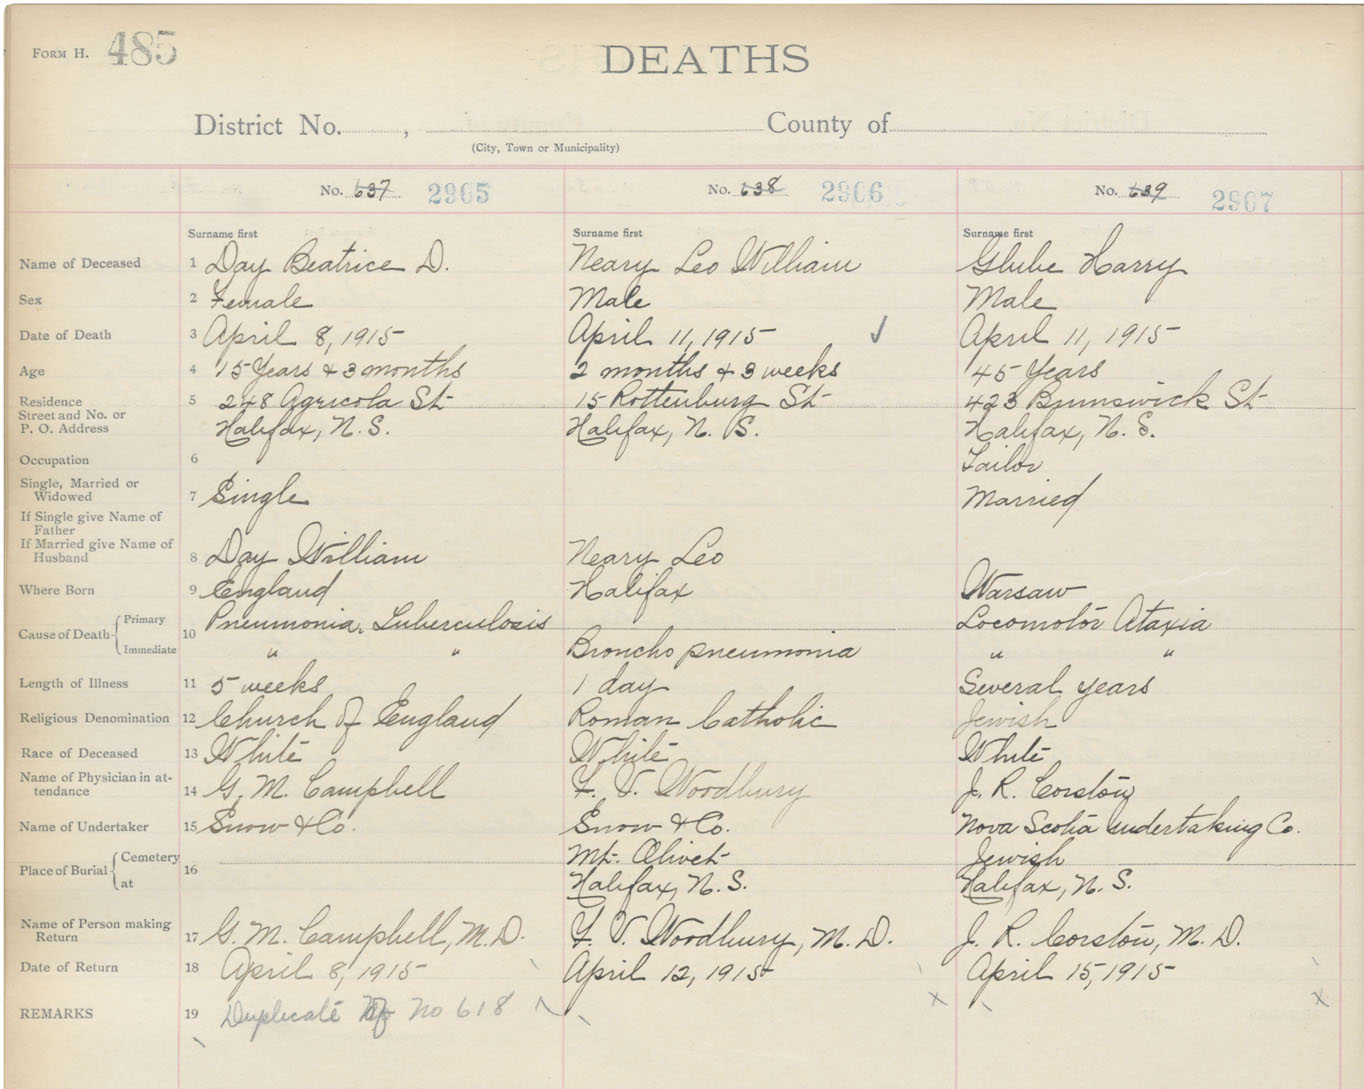 FORM H. 485
DEATHS
District No. , County of
(City, Town or Municipality)
No. 637 2965 No. 638 2966 No. 639 2967
Surname first Surname first Surname first
Name of Deceased 1 Day Beatrice D. Neary Leo William Glube Harry
Sex 2 Female Male Male
Date of Death 3 April 8, 1915 April 11, 1915 ✓ April 11, 1915
Age 4 15 Years + 3 months 2 months + 3 weeks 45 Years
Residence 5 248 Agricola St 15 Rottenburg St 423 Brunswick St
Street and No. or
P. O. Address Halifax, N. S. Halifax, N. S. Halifax, N. S.
Occupation 6 Tailor
Single, Married or
Widowed 7 Single Married
If Single give Name of
Father
If Married give Name of
Husband 8 Day William Neary Leo
Where Born 9 England Halifax Warsaw
Cause of Death Primary 10 Pneumonia. Tuberculosis Locomotor Ataxia
Immediate " " Broncho pneumonia " "
Length of Illness 11 5 weeks 1 day Several years
Religious Denomination 12 Church of England Roman Catholic Jewish
Race of Deceased 13 White White White
Name of Physician in at-
tendance 14 G. M. Campbell F. V. Woodbury J. R. Corston
Name of Undertaker 15 Snow & Co. Snow & Co. Nova Scotia undertaking Co.
Place of Burial Cemetery 16 Mt. Olivet Jewish
at Halifax, N. S. Halifax, N. S.
Name of Person making
Return 17 G. M. Campbell, M. D. F. V. Woodbury, M. D. J. R. Corston, M. D.
Date of Return 18 April 8, 1915 April 12, 1915 April 15, 1915
REMARKS 19 Duplicate of No 618 x x